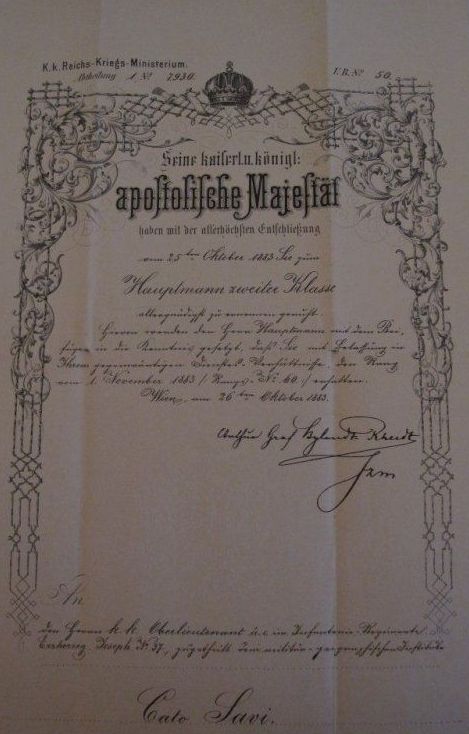 K.k. Reichs-Kriegs-Ministerium.
Abtheilung 1 № 7930.
V.B. № 50.
Seine kaiserl. u. königl:
apostolische Majestät
haben mit der allerhöchsten Entschließung
vom 25ten Oktober 1883 Sie zum
Hauptmann zweiter Klasse
allergnädigst zu ernennen geruht.
Hievon werden der Herr Hauptmann mit dem Bei-
fügen in die Kenntnis gesetzt, daß Sie mit Belassung in
Ihrem gegenwärtigen Dienstes-Verhältnisse, den Rang
vom 1. November 1883 / Rangs-№ 60 / erhalten.
Wien, am 26ten Oktober 1883.
Arthur Graf Bylandt Rheidt
Fzm
An
den Herrn k.k. Oberlieutenant im Infanterie-Regimente
Erzherzog Joseph № 37, zugetheilt dem militär-geographischen Institute
Cato Savi.